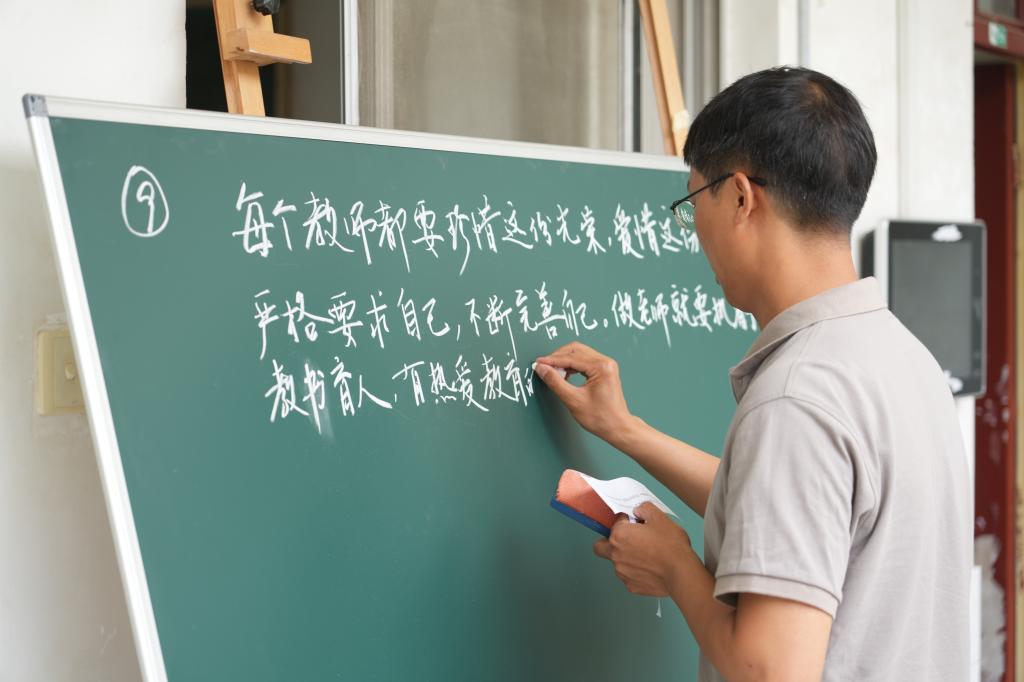 9
每个教师都要珍惜这份光荣,爱惜这份
严格要求自己,不断完善自己。做老师就要执着
教书育人,有热爱教育